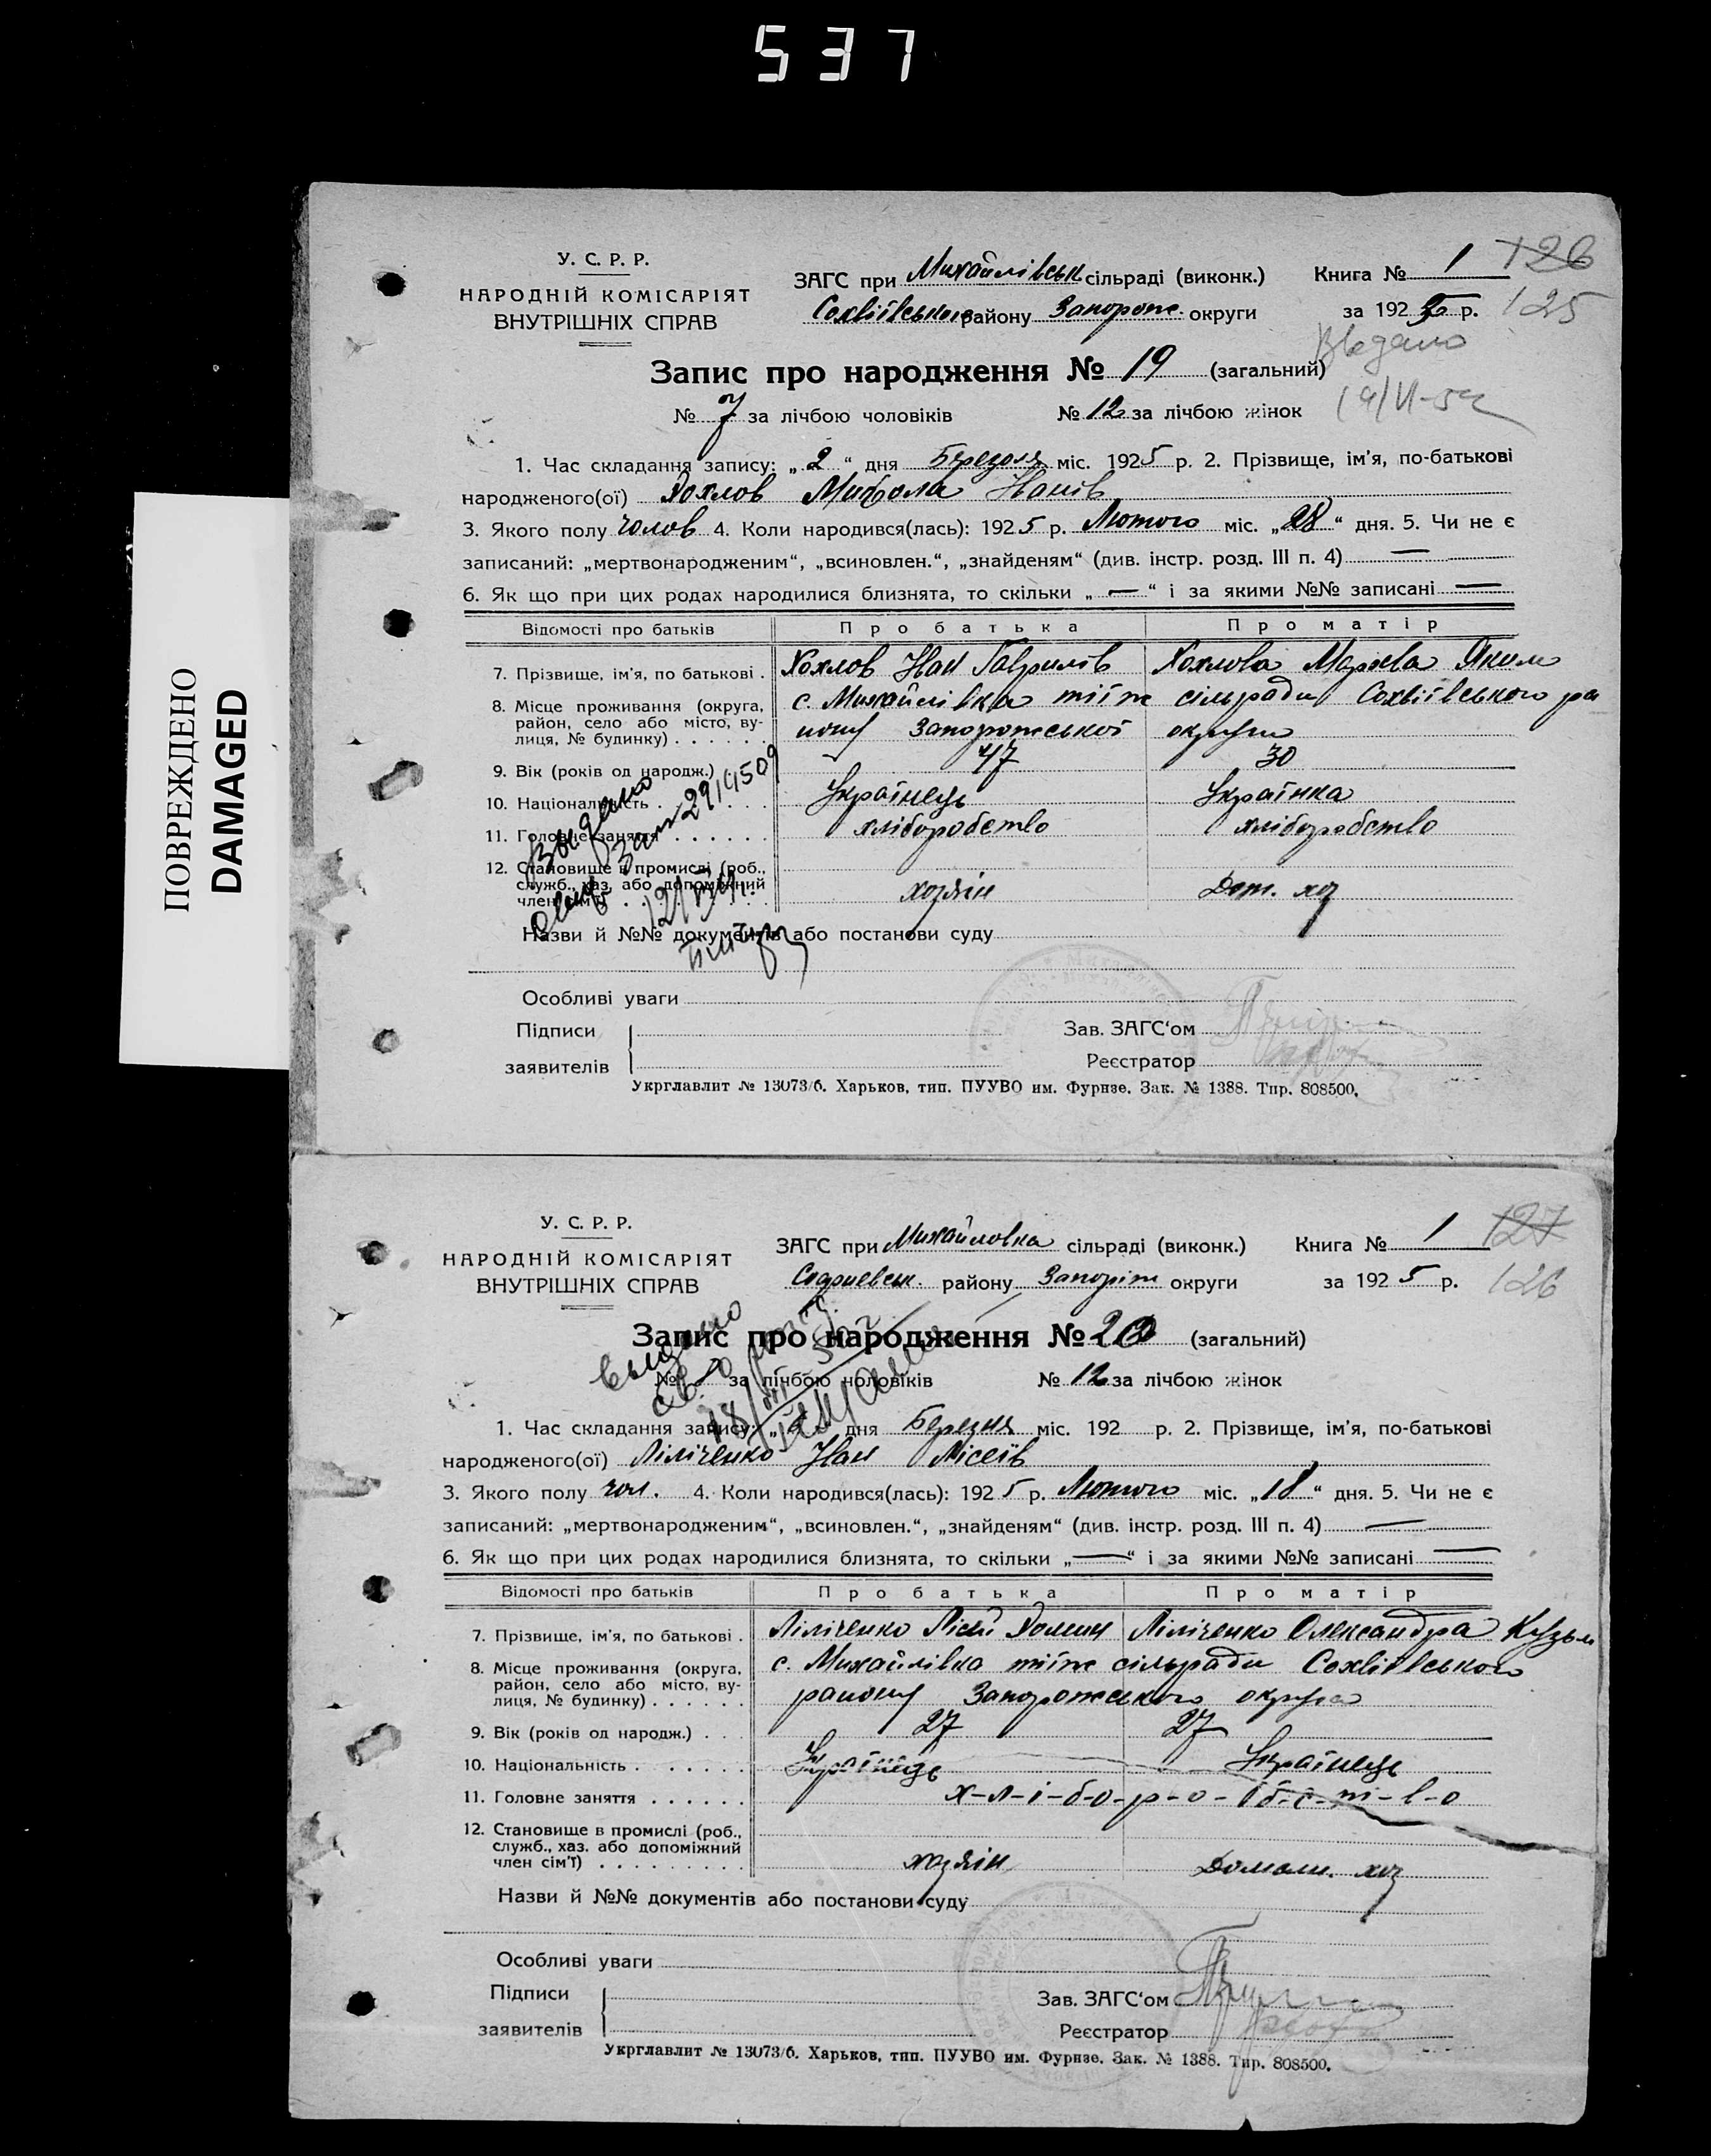 537
ПОВРЕЖДЕНО
DAMAGED
У. С. Р. Р.
НАРОДНІЙ КОМІСАРІЯТ
ВНУТРІШНІХ СПРАВ
ЗАГС при Михайлівськ сільраді (виконк.)
Сохвіївського району Запорож. округи
Книга № 1
за 1925 р.
126
125
Запис про народження № 19 (загальний)
№ 7 за лічбою чоловіків № 12 за лічбою жінок
1. Час складання запису: „ 2 “ дня Березоля міс. 1925 р. 2. Прізвище, ім'я, по-батькові
народженого(ої) Хохлов Микола Иванів
3. Якого полу чолов 4. Коли народився(лась): 1925 р. Лютого міс. „28“ дня. 5. Чи не є
записаний: „мертвонародженим“, „всиновлен.“, „знайденям“ (див. інстр. розд. III п. 4) —
6. Як що при цих родах народилися близнята, то скільки „ — “ і за якими №№ записані —
Відомості про батьків Про батька Про матір
7. Прізвище, ім'я, по батькові . Хохлов Иван Гаврилів Хохлова Яким
8. Місце проживання (округа, район, село або місто, вулиця, № будинку) . . . . . . с. Михайлівка тіїж сільради Сохвіївського ра
йону Запорожської округи
9. Вік (років од народж.) 47 30
10. Національність . . . . . . Українець Українка
11. Головне заняття . . . . . . хліборобство хліборобство
12. Становище в промислі (роб., служб., хаз. або допоміжний член сім'ї) хозяїн Дом. хоз
Выдано
Назви й №№ документів або постанови суду
Особливі уваги
Підписи
заявителів
Зав. ЗАГС'ом
Реєстратор
Укрглавлит № 13073/б. Харьков, тип. ПУУВО им. Фрунзе. Зак. № 1388. Тир. 808500.
У. С. Р. Р.
НАРОДНІЙ КОМІСАРІЯТ
ВНУТРІШНІХ СПРАВ
ЗАГС при Михайловка сільраді (виконк.)
району Запоріж округи
Книга № 1
за 1925 р.
127
126
Запис про народження № 20 (загальний)
№ за лічбою чоловіків № 12 за лічбою жінок
выдано
1. Час складання запису: „ “ дня Березня міс. 192 р. 2. Прізвище, ім'я, по-батькові
народженого(ої) Ліліченко Иван Лісеїв
3. Якого полу чол. 4. Коли народився(лась): 1925 р. Лютого міс. „18“ дня. 5. Чи не є
записаний: „мертвонародженим“, „всиновлен.“, „знайденям“ (див. інстр. розд. III п. 4) —
6. Як що при цих родах народилися близнята, то скільки „—“ і за якими №№ записані —
Відомості про батьків Про батька Про матір
7. Прізвище, ім'я, по батькові . Ліліченко Лісей Ліліченко Олександра Кузьм
8. Місце проживання (округа, район, село або місто, вулиця, № будинку) . . . . . . с. Михайлівка тіїж сільради Сохвіївського
району Запорожського округа
9. Вік (років од народж.) . . . 27 27
10. Національність . . . . . . Українець Українець
11. Головне заняття . . . . . . х-л-і-б-о-р-о-б-с-т-в-о
12. Становище в промислі (роб., служб., хаз. або допоміжний член сім'ї) . . . . . . . . . хозяїн Домашн. хоз
Назви й №№ документів або постанови суду
Особливі уваги
Підписи
заявителів
Зав. ЗАГС'ом
Реєстратор
Укрглавлит № 13073/б. Харьков, тип. ПУУВО им. Фрунзе. Зак. № 1388. Тир. 808500.